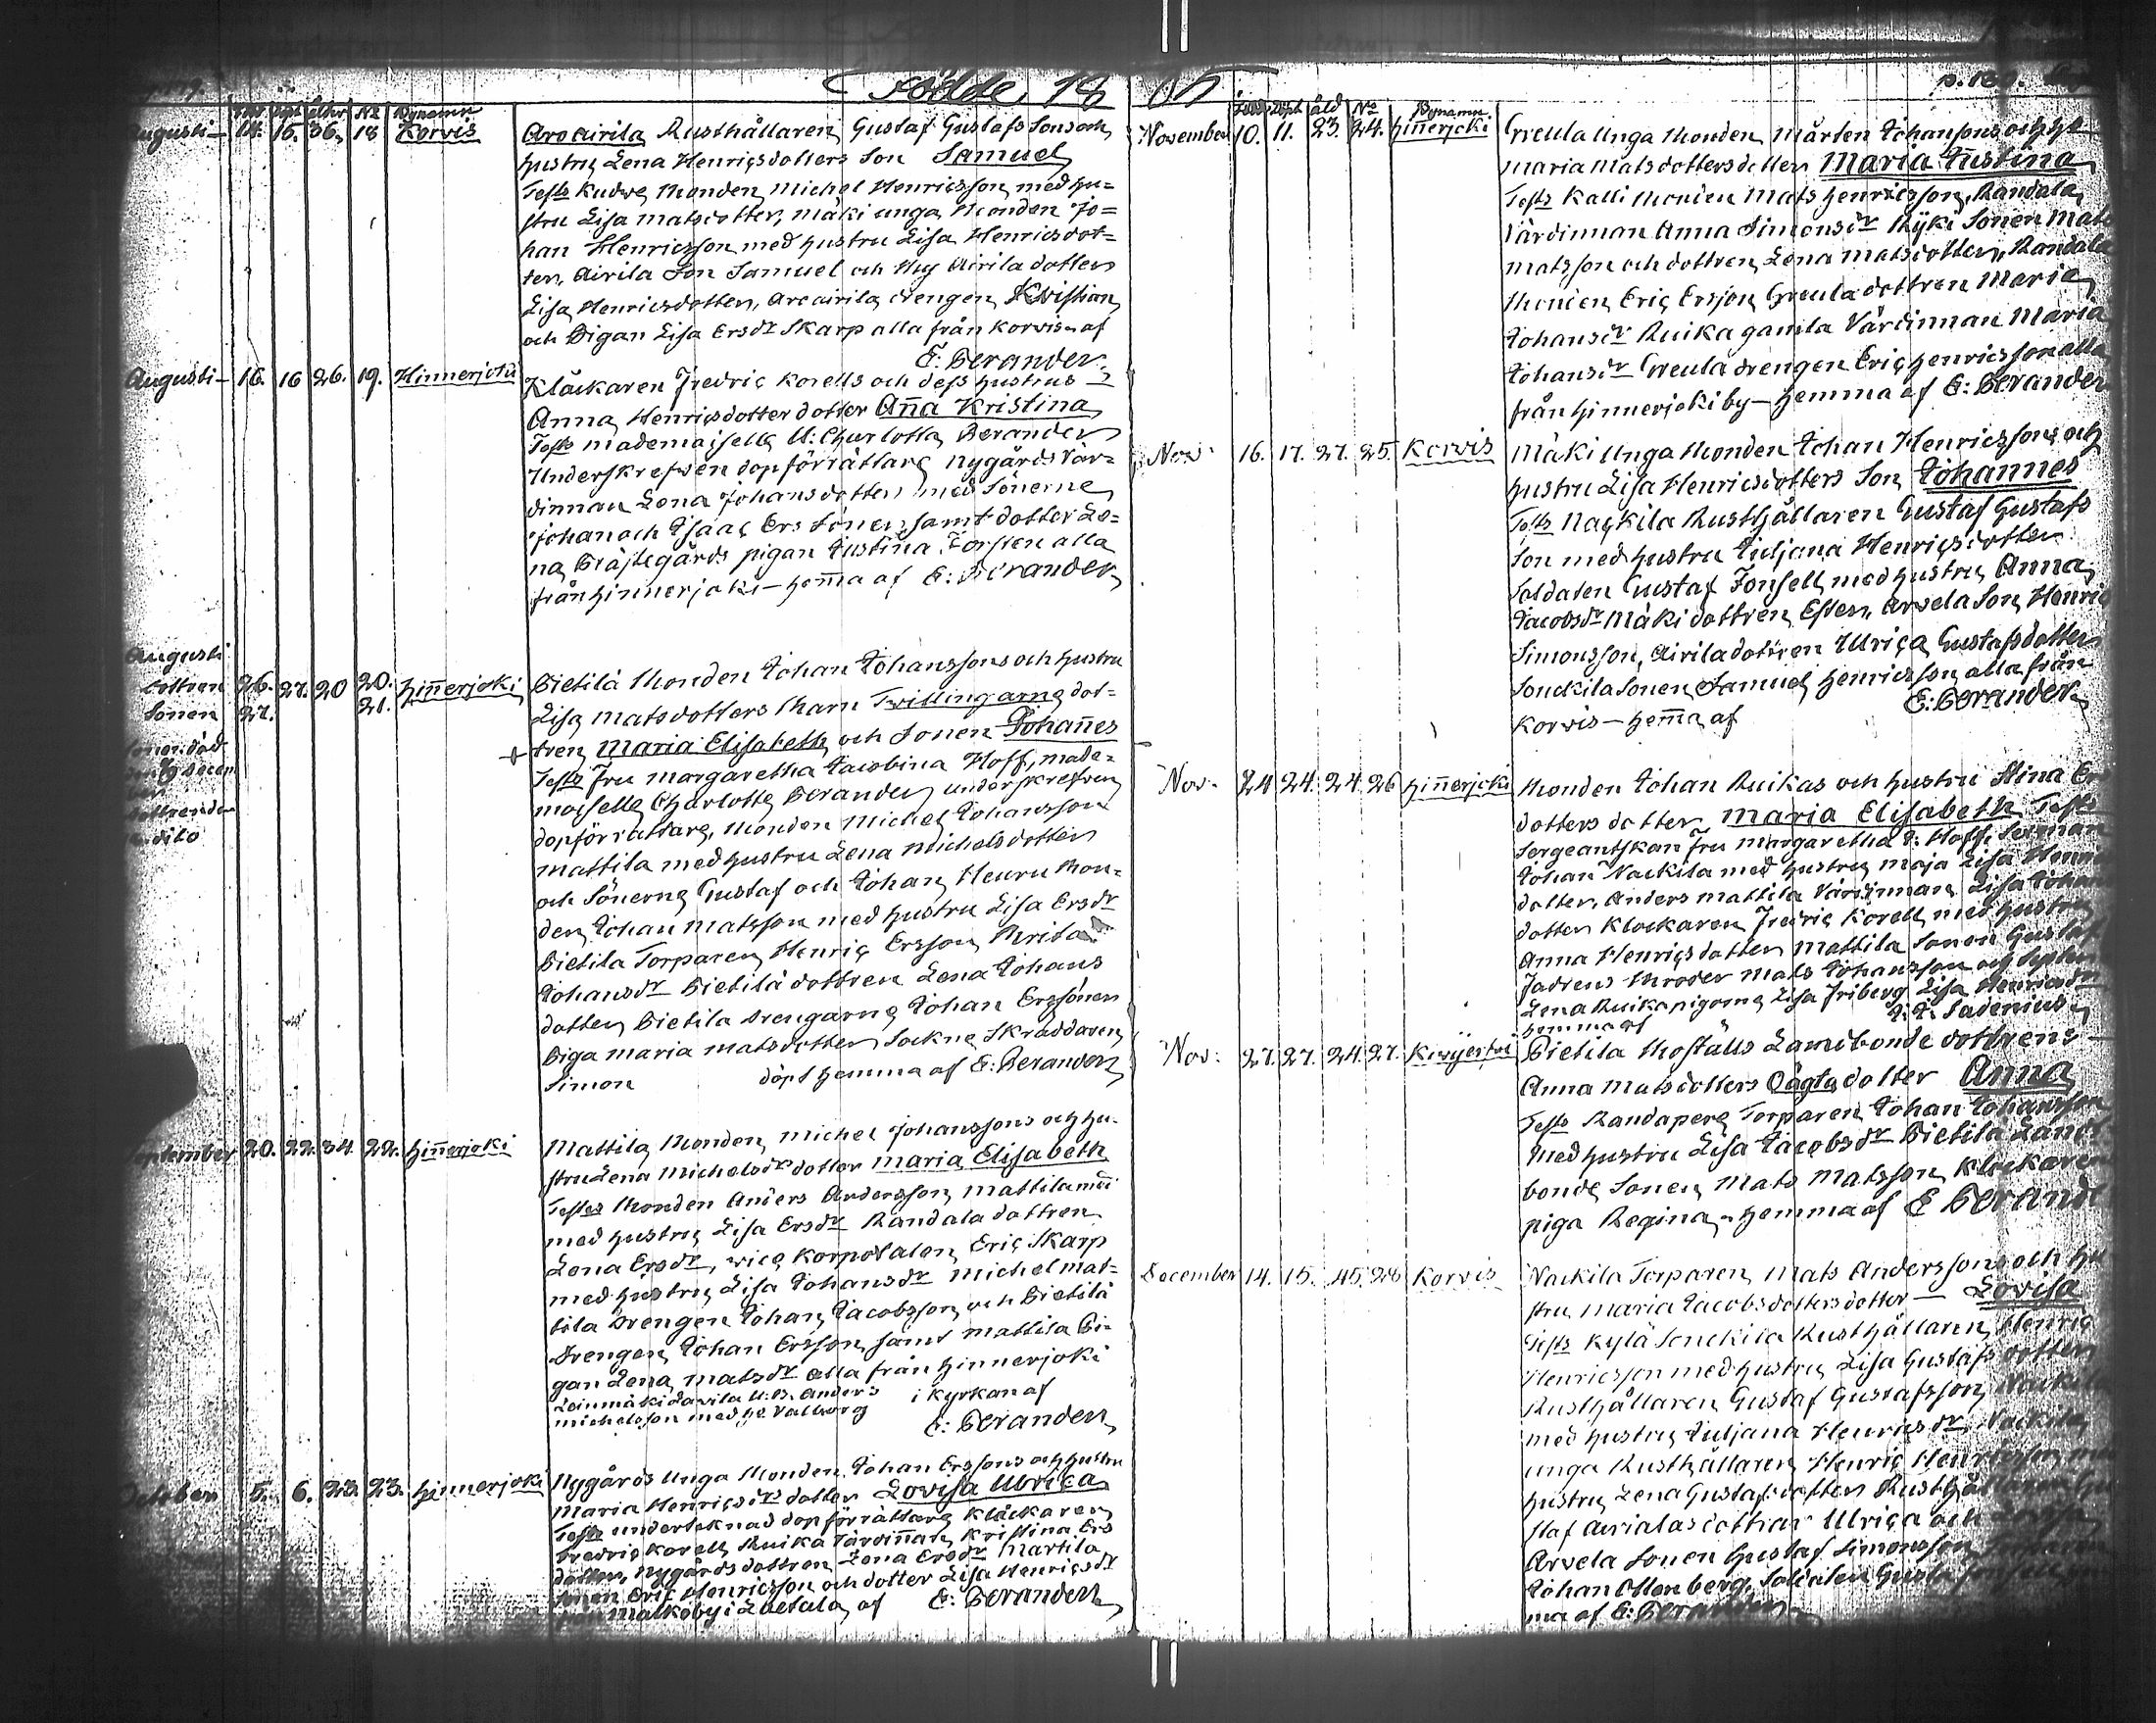 Födde 18 07
Född Döpt Ålder No Bynamn
Augusti — 14. 15. 36. 18 Korvis
Aroairila Rusthållaren Gustaf Gustafs Sons och
hustru Lena Henricsdotters Son Samuel
Tests Kudvo Bonden Michel Henricsson med hu=
stru Lisa matsdotter, mäki unga Bonden Jo=
han Henricsson med hustru Lisa Henricsdot=
ter, Airila Son Samuel och Airila dotter
Lisa Henricsdotter, Aroairila drengen Kristian
och Pigan Lisa Ersdr Skarp alla från Korvis — af
E: Perander.
Augusti — 16. 16 26. 19. Hinnerjoki
Klåckaren Fredric Korells och dess hustrus
Anna Henricsdotter dotter Aña Kristina
Tests mademoiselle U: Charlotta Perander
Underskrefven dopförrättare nygårds Vär=
dinnan Lena Johansdotter med Sönerne
Johan och Isaac Ers Söner, samt dotter Le=
na Präjtegårds pigan Justina Forsten alla
från hinnerjoki — hem̃a af E: Perander
Augusti
dottren 26. 27. 20 20. hiñerjoki
Sonen 27. 21.
Pietilä Bonden Johan Johanssons och hustru
Lisa matsdotters Barn Twillingarne dot=
tren Maria Elisabeth och Sonen Johañes
Tests Fru margaretha Jacobina Hoff, made=
moiselle Charlotta Perander underskrefven
dopförrättare, Bonden Michel Johansson
mattila med hustru Lena michelsdotter
och Sönerne Gustaf och Johan, Heuru Bon=
den Johan matsson med hustru Lisa Ersdr
Pietila Torparen Henric Ersson, Brita
Johansdr Pietilä dottren Lena Johans
dotter Pietila drengarne Johan Erssöner
Piga maria matsdotter Sockne Skräddaren
Simon döpt hemma af E: Perander
September 20. 22. 34. 22. hiñerjoki
Mattila Bonden michel Johanssons och hu=
stru Lena michelsdr dotter maria Elisabeth
Testes Bonden Anders Andersson mattila
med hustru Lisa Ersdr Randala dottren
Lena Ersdr, vice Korporalen Eric Skarp
med hustru Lisa Johansdr michel mat=
tila drengen Johan Jacobsson och Pietilä
drengen Johan Ersson samt mattila Pi=
gan Lena matsdr alla från hinnerjoki
Leinmäki Lavila U. B. Anders i kyrkan af
michelsson med h. Valborg
E: Perander
October 5. 6. 23. 23. hinnerjoki
Nygårds Unga Bonden Johan Erssons och hustru
Maria Henricsdrs dotter Lovisa Ulrica
Tests undertecknad dopförrättare Klåckaren
Fredric Korell Ruika Värdiñan Kristina Ers
dotter, nygårds dottren Lena Ersdr Martila
Sonen Eric Henricsson och dotter Lisa Henricsdr
malkoby i Laetala af E: Perander
November 10. 11. 23. 24. hiñerjoki
Greula Unga Bonden Mårten Johanssons och hu
maria matsdotters dotter Maria Justina
Tests Kalli Bonden Mats Henricsson, Randala
Värdinnan Anna Simonsdr Rÿki Sonen Mats
matsson och dottren Lena matsdotter, Randala
Bonden Eric Ersson Greula dottren Maria
Johansdr Ruika gamla Värdinnan Maria
Johansdr Greula drengen Eric Henricsson alla
från hinnerjoki by — hemma af E: Perander
Nov: 16. 17. 27. 25. Korvis
Mäki Unga Bonden Johan Henricssons och
hustru Lisa Henricsdotters Son Johannes
Tests Nackila Rusthållaren Gustaf Gustafs
Son med hustru Juljana Henricsdotter
Soldaten Gustaf Fonsell med hustru Anna
Jacobsdr Mäki dottren Ester, Arvela Son Henric
Simonsson, Airila dottren Ulrica Gustafsdotter
Sonckila Sonen Samuel Henricsson alla från
Korvis — hem̃a af E: Perander
Nov: 24. 24. 24. 26 hiñerjoki
Bonden Johan Ruikas och hustru Stina Er
dotters dotter maria Elisabeth Tests
Sergeantskan Fru margaretha J: Hoff,
Johan Nackila med hustru maja Lisa
dotter, Anders mattila Värdinnan Lisa
dotter Klockaren Fredric Korell med hustru
Anna Henricsdotter mattila Sonen Gustaf
Fadrens Broder Mats Johansson och
Lena Ruika pigorne Lisa Friberg Lisa Henricsdr
hemma af Sadenius
Nov: 27. 27. 24. 27.
Pietila Boställs Lanbonde dottrens
Anna Matsdotters Oägta dotter Anna
Tests Randapere Torparen Johan Johansson
med hustru Lisa Jacobsdr Pietila Lan
bonde Sonen Mats Matsson Klockaren
piga Regina — hemma af E Perand
December 14. 15. 45. 28 Korvis
Nackila Torparen Mats Anderssons och hu
stru maria Jacobsdotters dotter — Lovisa
Tests Kylä Sonckila Rusthållaren Henric
Henricsson med hustru Lisa Gustafsdotter
Rusthållaren Gustaf Gustafsson Nackila
med hustru Juljana Henricsdr Nackila
unga Rusthållaren Henric Henricsson
hustru Lena Gustafsdotter Rusthållaren Gu
staf Airilas dottrar Ulrica och
Arvela Sonen Gustaf Simonsson
Johan Ottenberg, Soldaten Gustaf
ma af E: Perander